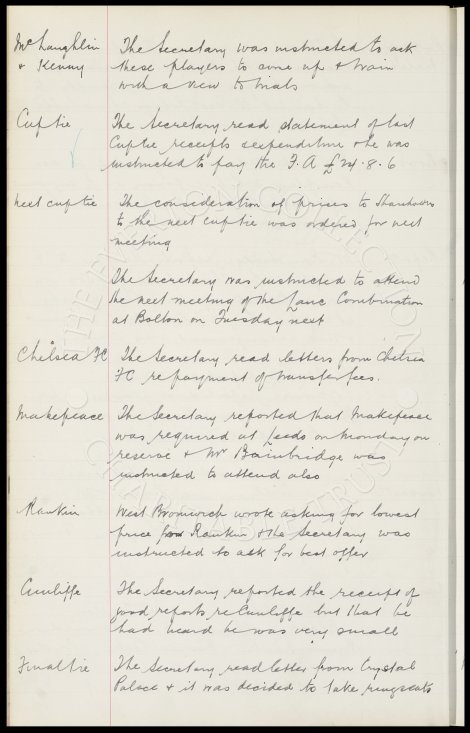 McLaughlin The Secretary was instructed to ask
& Kenny these players to come up & train
with a view to trials
Cuptie The Secretary read statement of last
Cuptie receipts & expenditure & he was
instructed to pay the F.A £24.8.6
next cuptie The consideration of prices to Stand
to the next cuptie was ordered for next
meeting
The Secretary was instructed to attend
the next meeting of the Lanc Combination
at Bolton on Tuesday next
Chelsea FC The Secretary read letters from Chelsea
FC re payment of transfer fees.
Makepeace The Secretary reported that Makepeace
was required at Leeds on Monday as
reserve & Mr Bainbridge was
instructed to attend also
Rankin West Bromwich wrote asking for lowest
price for Rankin & the Secretary was
instructed to ask for best offer
Cunliffe The Secretary reported the receipt of
good reports re Cunliffe but that he
had heard he was very small
Final tie The Secretary read letter from Crystal
Palace & it was decided to take ring seats
THE EVERTON COLLECTION
CHARITABLE TRUST